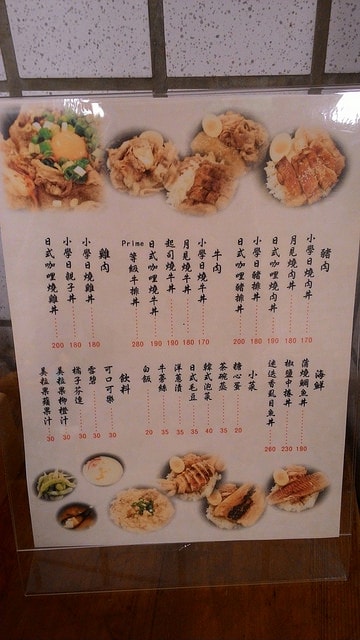 豬肉
小學日燒肉丼 170
月見燒肉丼 180
日式咖哩燒肉丼 190
小學日豬排丼 180
日式咖哩豬排丼 200
牛肉
小學日燒牛丼 170
月見燒牛丼 180
起司燒牛丼 190
日式咖哩燒牛丼 190
Prime等級牛排丼 280
雞肉
小學日燒雞丼 180
小學日親子丼 180
日式咖哩燒雞丼 200
海鮮
蒲燒鯛魚丼 180
椒鹽中捲丼 230
迷迭香虱目魚丼 260
小菜
糖心蛋 20
茶碗蒸 35
韓式泡菜 40
日式毛豆 35
洋蔥漬 35
牛蒡絲 35
白飯 20
飲料
可口可樂 30
雪碧 30
橘子芬達 30
美粒果柳橙汁 30
美粒果蘋果汁 30